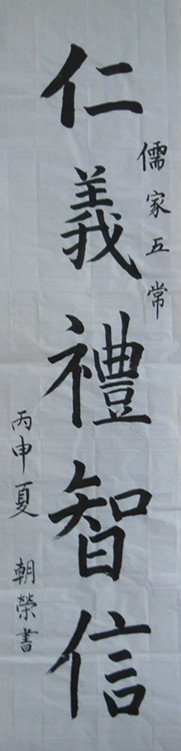 儒家五常
仁義禮智信
丙申夏 朝榮書